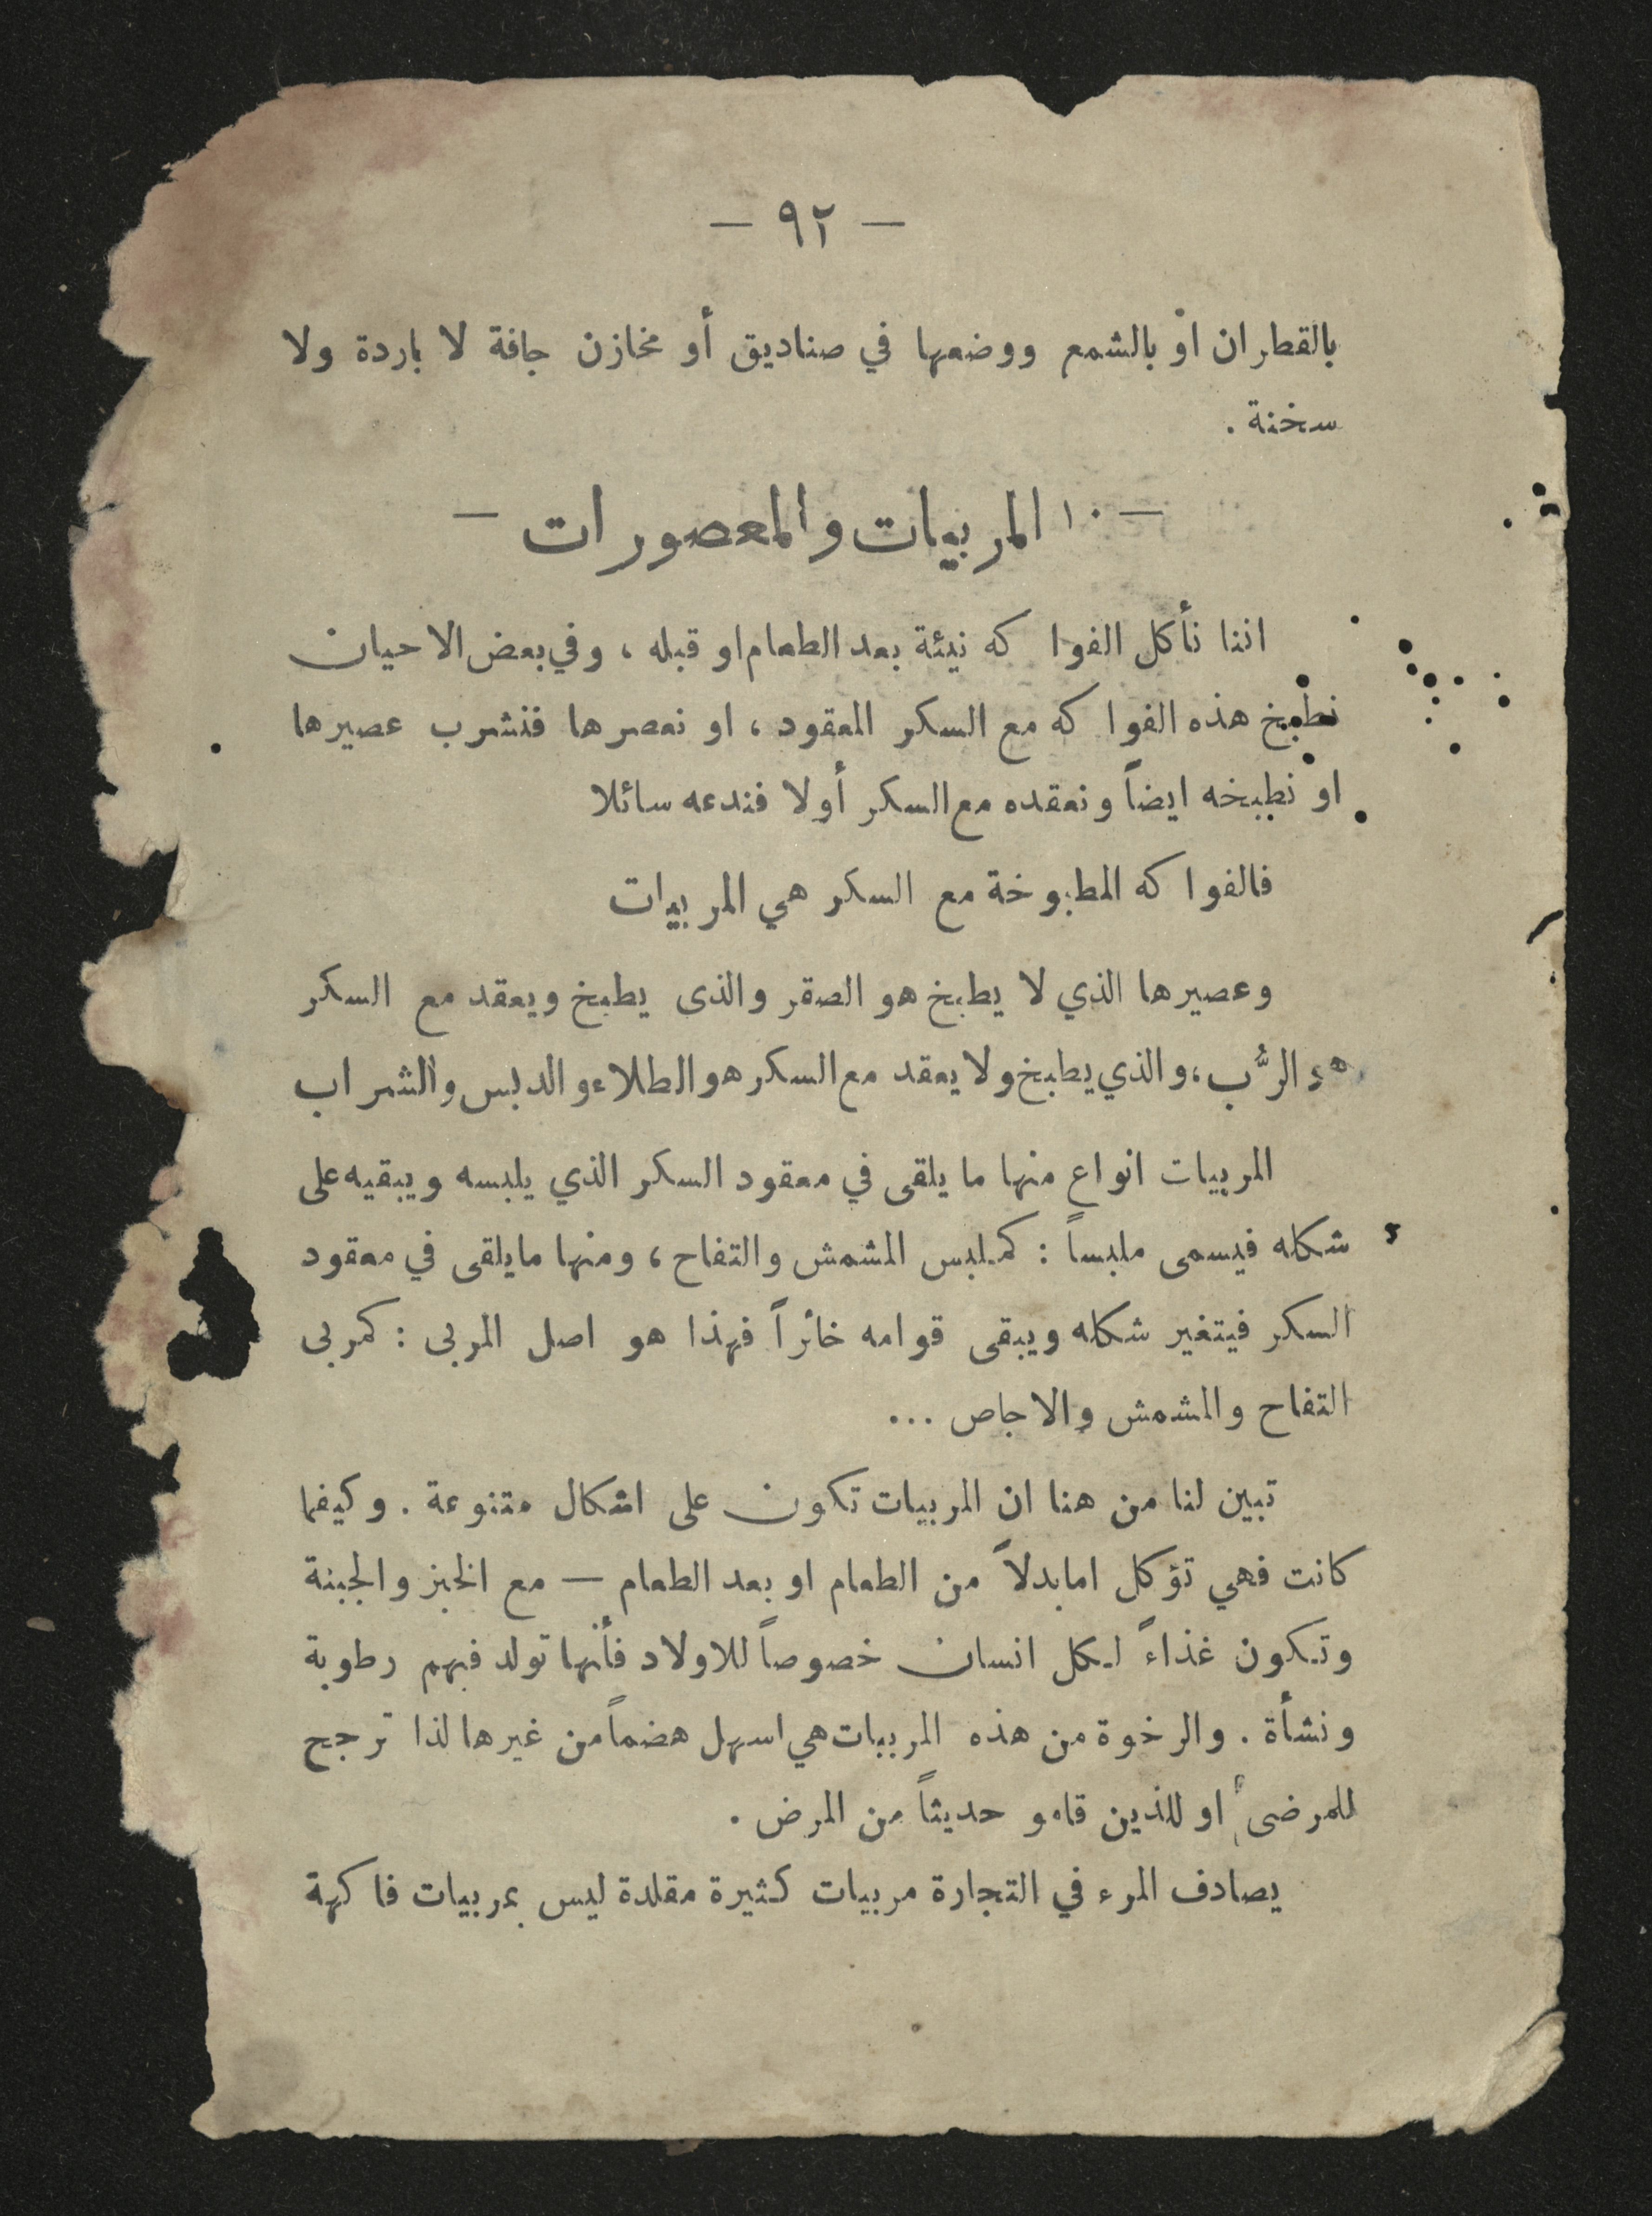 — ٩٢ —
بالقطران او بالشمع ووضعها في صناديق أو مخازن جافة لا باردة ولا
سخنة .
— ١٠ المربيات والمعصورات —
اننا نأكل الفواكه نيئة بعد الطعام او قبله ، وفي بعض الاحيان
نطبخ هذه الفواكه مع السكر المعقود ، او نعصرها فنشرب عصيرها
او نطبخه ايضاً ونعقده مع السكر أولا فندعه سائلا
فالفواكه المطبوخة مع السكر هي المربيات
وعصيرها الذي لا يطبخ هو الصقر والذى يطبخ ويعقد مع السكر
هو الرُّب ، والذي يطبخ ولا يعقد مع السكر هو الطلاء والدبس والشراب
المربيات انواع منها ما يلقى في معقود السكر الذي يلبسه ويبقيه على
شكله فيسمى ملبساً : كملبس المشمش والتفاح ، ومنها ما يلقى في معقود
السكر فيتغير شكله ويبقى قوامه خاثراً فهذا هو اصل المربى : كمربى
التفاح والمشمش والاجاص ...
تبين لنا من هنا ان المربيات تكون على اشكال متنوعة . وكيفما
كانت فهي تؤكل اما بدلاً من الطعام او بعد الطعام — مع الخبز والجبنة
وتكون غذاءً لكل انسان خصوصاً للاولاد فأنها تولد فيهم رطوبة
ونشأة . والرخوة من هذه المربيات هي اسهل هضماً من غيرها لذا ترجح
للمرضى او للذين قامو حديثاً من المرض .
يصادف المرء في التجارة مربيات كثيرة مقلدة ليس بمربيات فاكهة